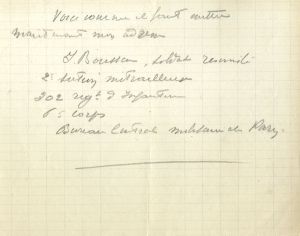 Voici comme il faut mettre
maintenant mon adresse
J Bousseau, soldat
2e section mitrailleuses
202 regt d'Infanterie
6e corps
Bureau Central militaire de Paris